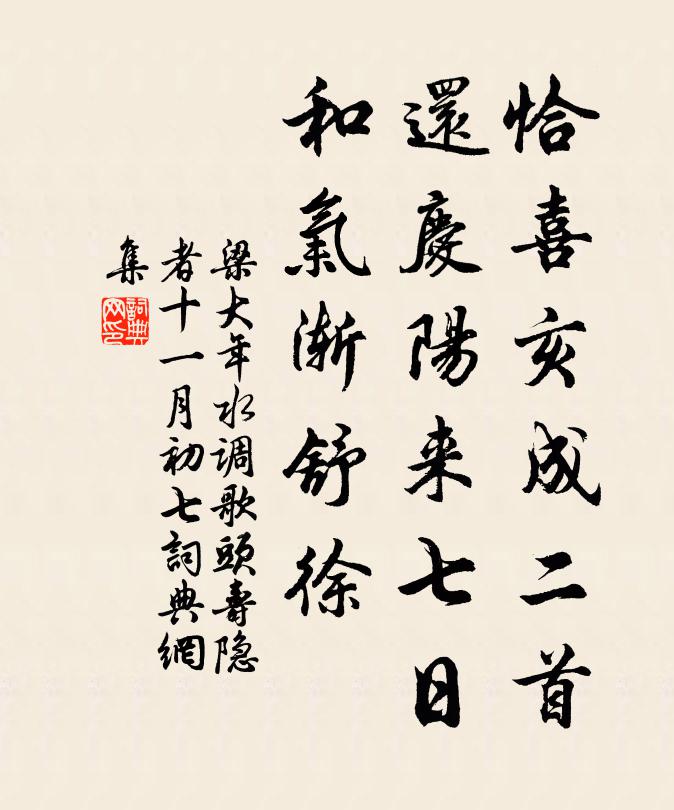 恰喜亥成二首
還慶陽来七日
和氣渐舒徐
梁大年水调歌頭壽隐
者十一月初七詞典網
集
詞典网印